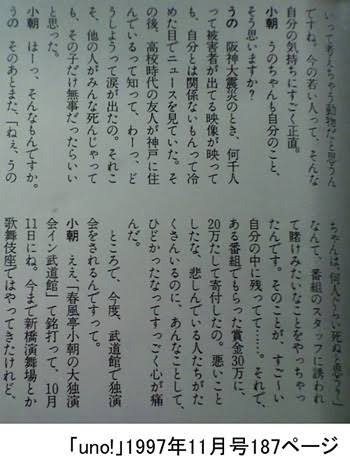 いって考えちゃう動物だと思うん
ですね。今の若い人って、そんな
自分の気持ちにすごく正直。
小朝 うのちゃんも自分のこと、
そう思いますか?
うの 阪神大震災のとき、何千人
って被害者が出てる映像が映って
も、自分とは関係ないもんって冷
めた目でニュースを見ていた。そ
の後、高校時代の友人が神戸に住
んでいるって知って、わーっ、ど
うしようって涙が出たの。それこ
そ、他の人がみんな死んじゃって
も、その子だけ無事だったらいい
と思った。
小朝 ほーっ、そんなもんですか。
うの そのあとまた、「ねぇ、うの
ちゃんは、何人ぐらい死ぬと思う?」
なんて、番組のスタッフに誘われ
て賭けみたいなことをやっちゃっ
たんです。そのことが、すご〜い
自分の中に残ってて……。それで、
ある番組でもらった賞金30万に、
20万たして寄付したの。悪いこと
したな、悲しんでいる人たちがた
くさんいるのに、あんなことして、
ひどかったなってすっごく心が痛
んだ。
ところで、今度、武道館で独演
会をされるんですって。
小朝 ええ、「春風亭小朝の大独演
会イン武道館」て銘打って、10月
11日にね。今まで新橋演舞場とか
歌舞伎座ではやってきたけれど、
「uno!」1997年11月号187ページ